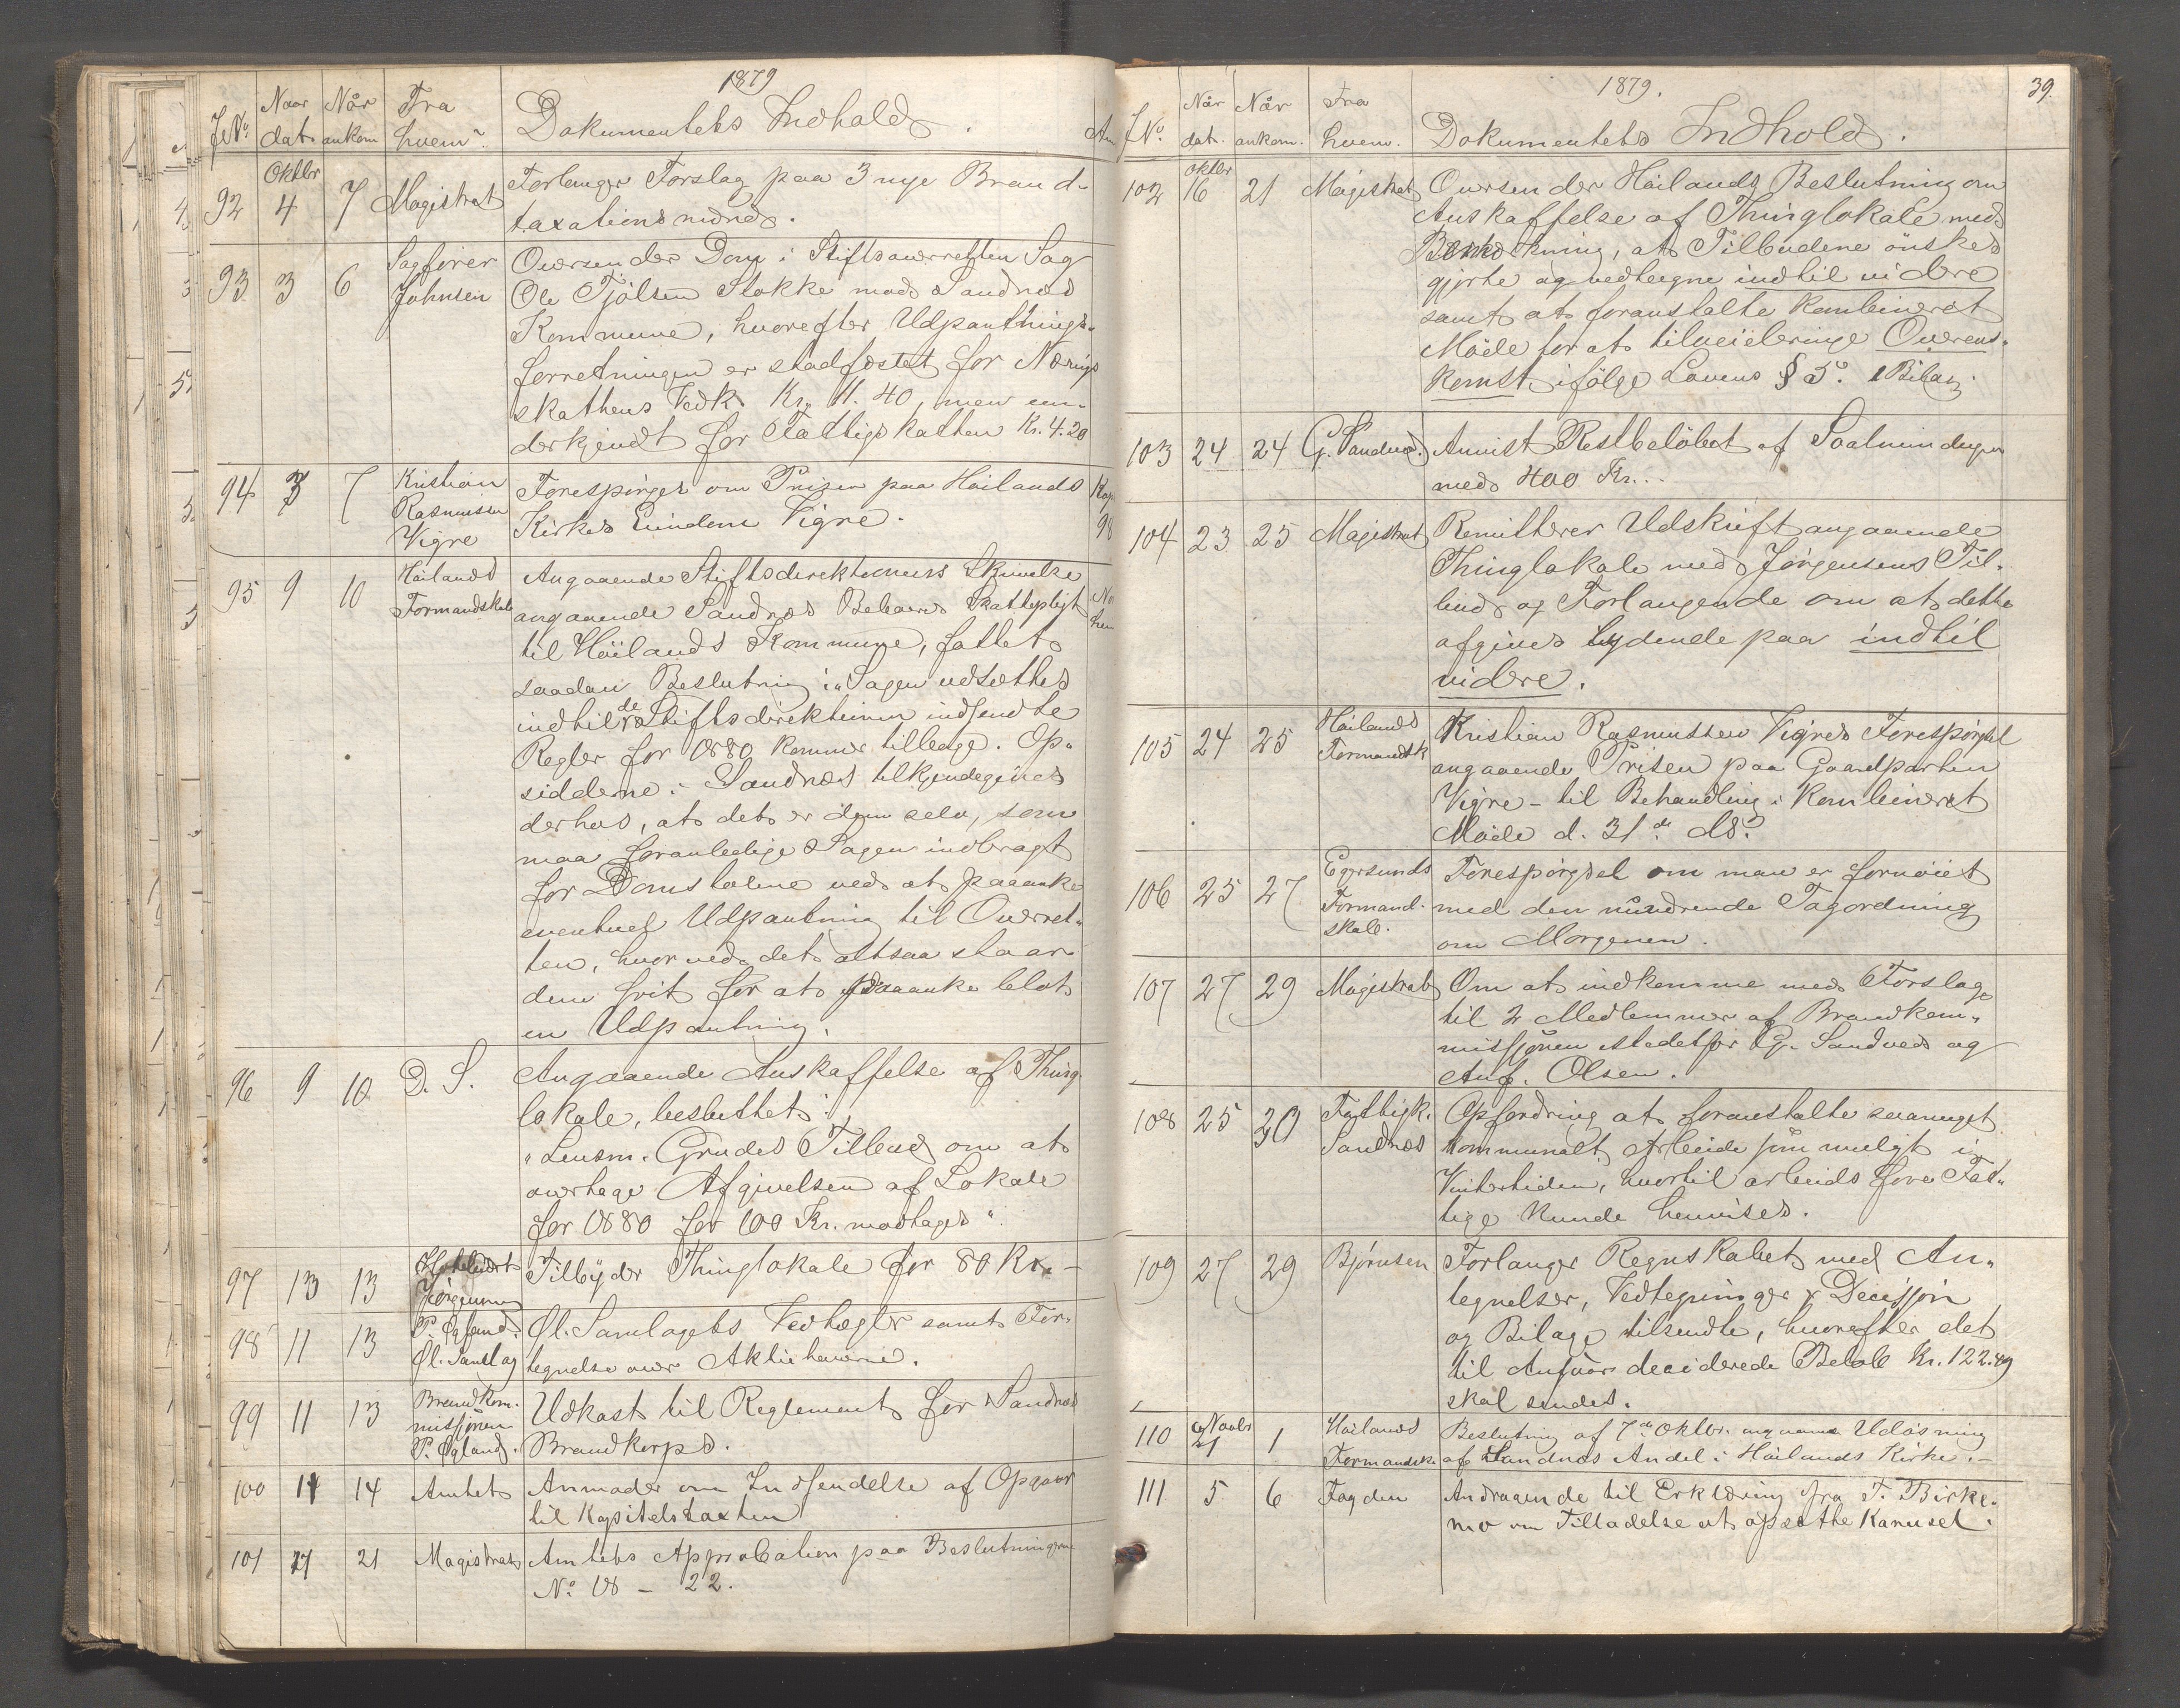 1879
J. No. Naar dat. Når ankom Fra hvem? Dokumentets Indhold.
Oktbr
92 4 7 Magistrat Forlanger Forslag paa 3 nye Brand-
taxationsmænd.
93 3 6 Sagfører Oversender Dom i Stiftsoverretten Sag
Johnsen Ole Tjölsen Stokke mod Sandnæs
Kommune, hvorefter Udpantnings-
forretningen er stadfæstet for Nærings
skattens Vedk. Kr. 11.40, men un-
derkjendt for Fattigskatten Kr. 4.20
94 3 7 Kristian Forespørger om Prisen paa Høilands
Rasmussen Kirkes Eiendom Vigre.
Vigre
95 9 10 Høilands Angaaende Stiftsdirektionens Skrivelse
Formandskab angaaende Sandnæs Beboeres Skattepligt
til Høilands Kommune, fattet
saadan Beslutning: "Sagen udsættes
indtil de Stiftsdirektionen indsendte
Regler for 1880 kommer tilbage. Op-
sidderne i Sandnæs tilkjendegives
derhos, at det er dem selv, som
maa foranledige Sagen indbragt
for Domstolene ved at paaanke
eventuel Udpantning til Overret-
ten, hvorved det altsaa staar
dem frit for at paaanke blot
en Udpantning.
96 9 10 D. S. Angaaende Anskaffelse af Thing-
lokale, besluttet:
"Lensm. Grudes Tilbud om at
overtage Afgivelsen af Lokale
for 1880 for 100 Kr. modtages".
97 13 13 Hotelvært Tilbyder Thinglokale for 80 Kr. -
Jörgensen
98 11 13 P. Øgland. Øl. Samlagets Vedtægter samt For-
Øl. Samlag tegnelse over Aktiehaverne.
99 11 13 Brandkom- Udkast til Reglement for Sandnæs
missjonen Brandkorps.
P. Øgland.
100 11 14 Amtet Anmoder om Indsendelse af Opgaver
til Kapitelstaxten
101 17 21 Magistrat Amtets Approbation paa Beslutningerne
No. 18 - 22.
1879.
39.
J No. Når dat. Når ankom. Fra hvem. Dokumentets Indhold.
Oktbr
102 16 21 Magistrat Oversender Høilands Beslutning om
Anskaffelse af Thinglokale med
Bemærkning, at Tilbudene önskes
gjorte og vedtagne indtil videre
samt at foranstalte kombineret
Möde for at tilveiebringe Overens-
komst ifölge Lovens § 5. 1 Bilag.
103 24 24 G. Sandved. Anvist Restbelöbet af
med 400 Kr..
104 23 25 Magistrat Remitterer Udskrift angaaende
Thinglokale med Jörgensens Til-
bud og Forlangende om at dette
afgives lydende paa indtil
videre.
105 24 25 Høilands Kristian Rasmussen Vigres Forespörgsel
Formandsk angaaende Prisen paa Gaardparten
Vigre - til Behandling i kombineret
Möde d. 31de ds.
106 25 27 Egersunds Forespörgsel om man er fornöiet
Formand- med den nuværende Togordning
skab. om Morgenen.
107 27 29 Magistrat Om at indkomme med Forslag
til 2 Medlemmer af Brandkom-
missjonen istedetfor G. Sandved og
Aug. Olsen.
108 25 29 Fattigk. Opfordring at foranstalte saameget
Sandnæs kommunalt Arbeide som muligt i
Vintertiden, hvortil arbeidsföre Fat-
tige kunde henvises.
109 27 29 Bjørnsen Forlanger Regnskabet med An-
tegnelser, Vedtegninger & Decissjon
og Bilage tilsendte, hvorefter det
til Ansvar deciderede Beløb Kr. 122.49
skal sendes.
Novbr
110 1 Høilands Beslutning af 7de Oktbr. angaaende Udlösning
Formandsk. af Sandnæs Andel i Høilands Kirke. -
111 5 6 Fogden Andragende til Erklæring fra T. Birke-
mo om Tilladelse at opsætte Karusel.